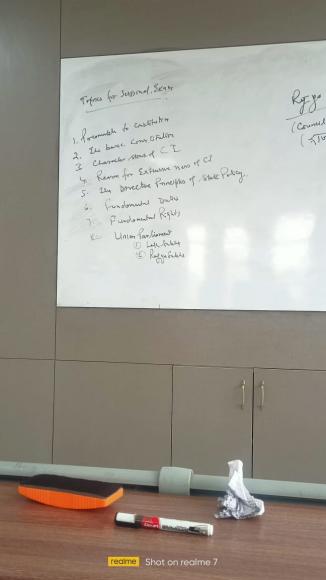 Topics for Sessional Exam
1. Preamble to Constitution
2. The basic
3. Characteristics of C I
4. Reason for Extensiveness of CI
5. The Directive Principles of State Policy.
6. Fundamental Duties
7. Fundamental Rights
8. Union Parliament
① Lok Sabha
② Rajya Sabha
(Council
realme Shot on realme 7